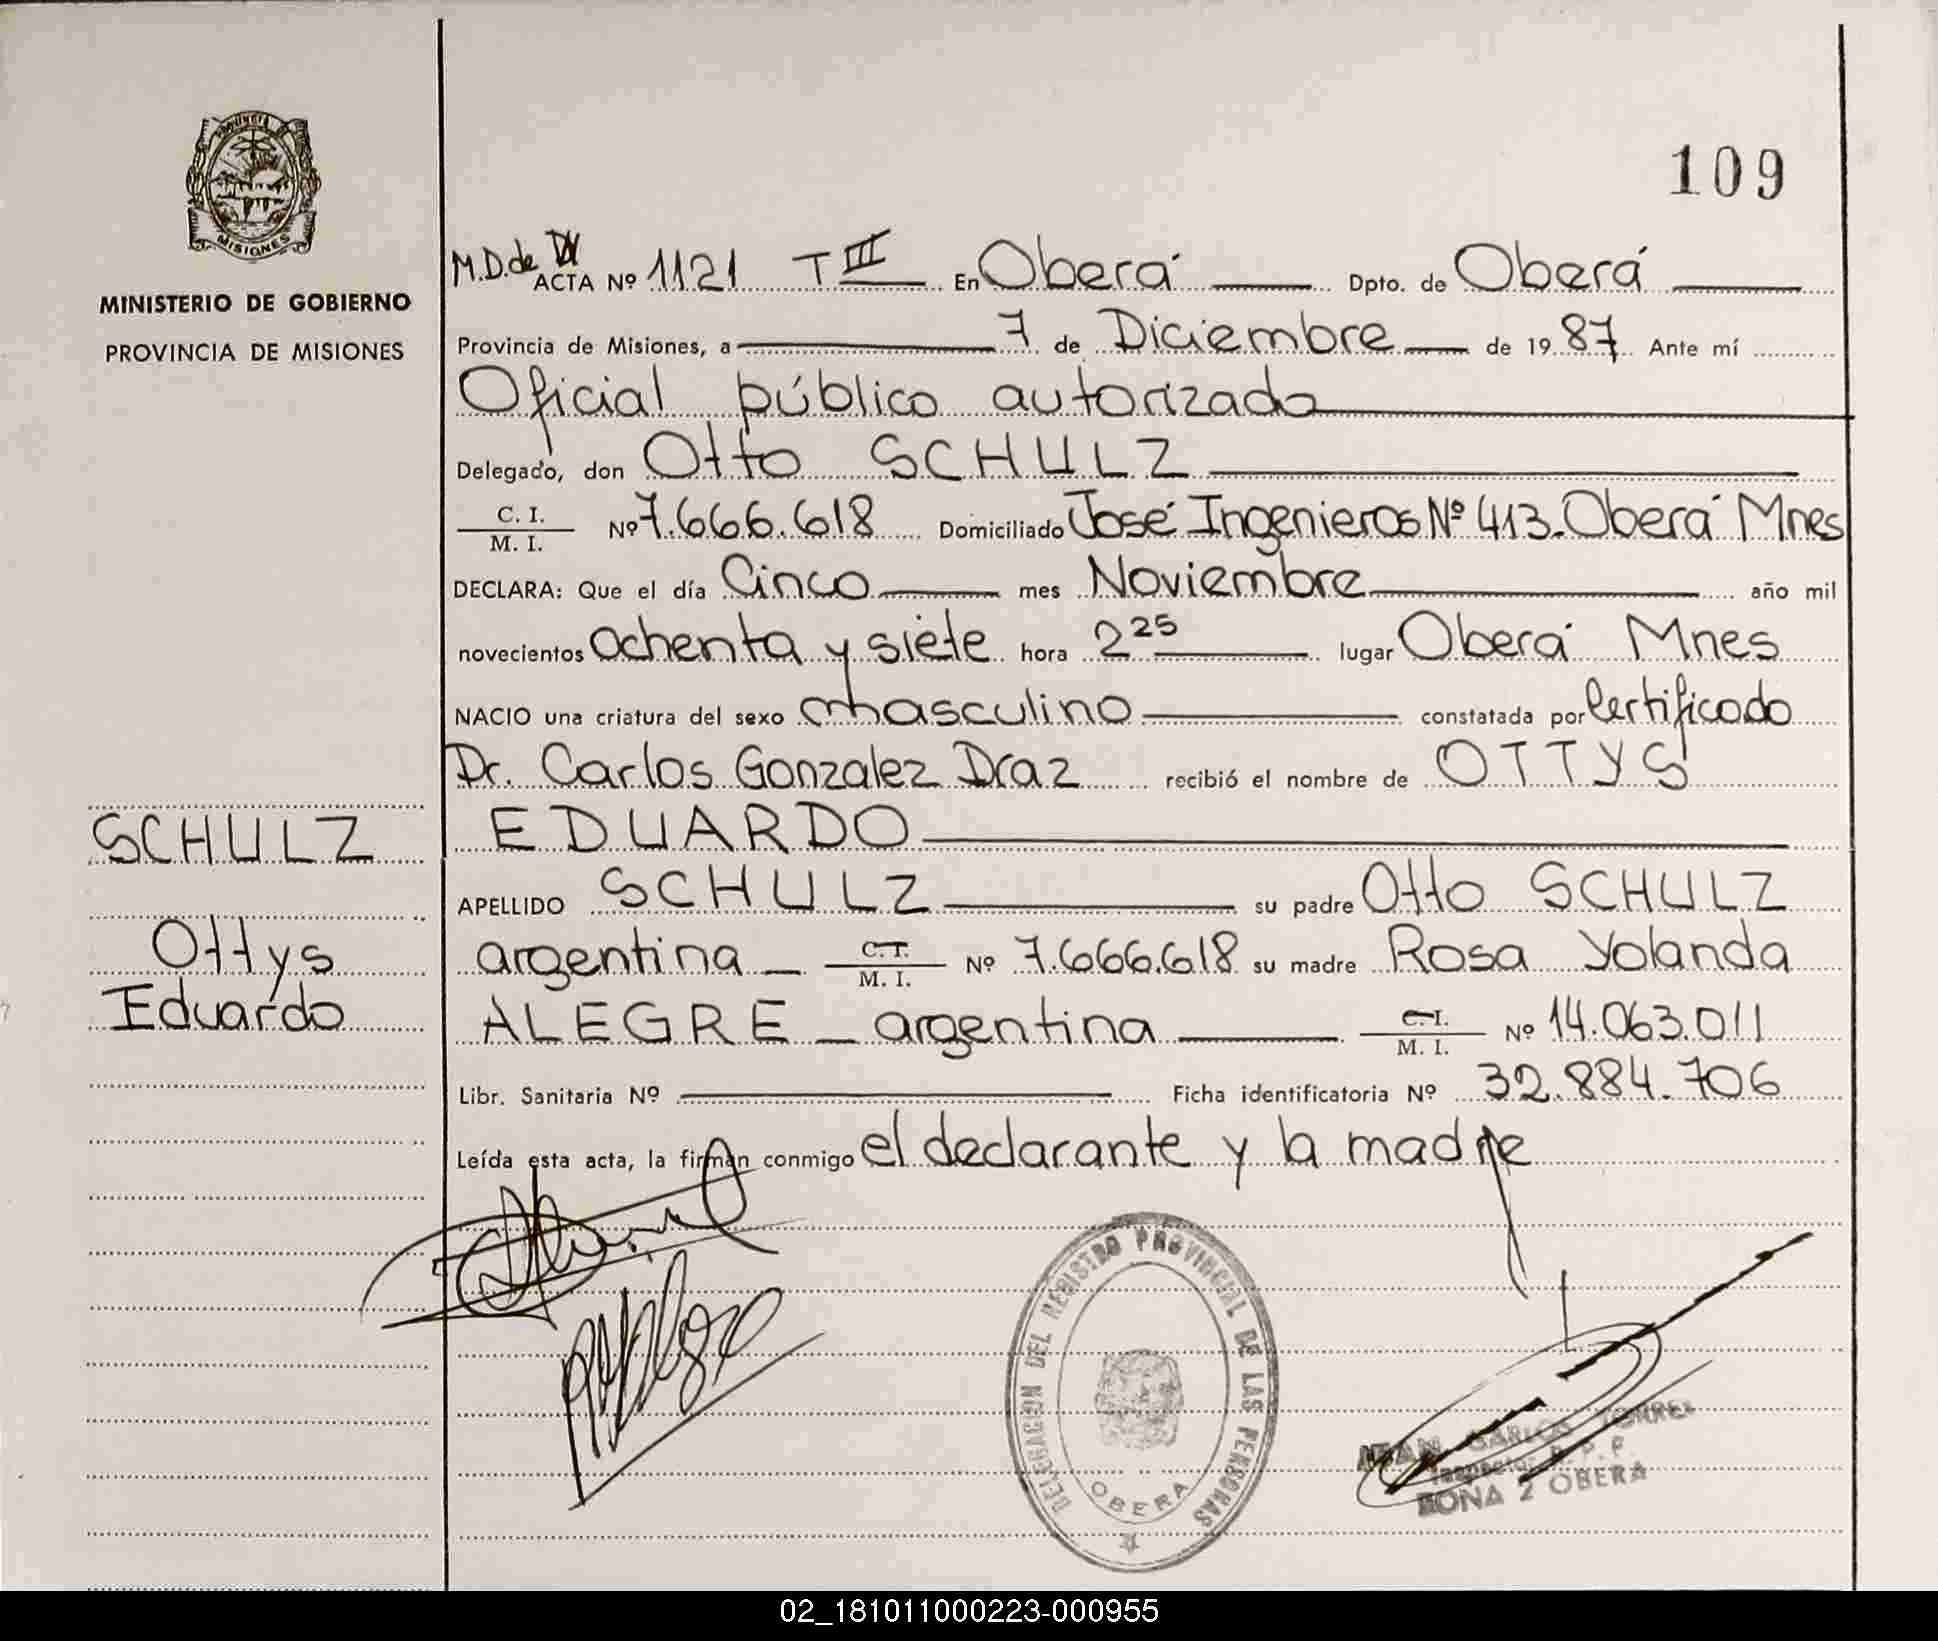 PROVINCIA
MISIONES
MINISTERIO DE GOBIERNO
PROVINCIA DE MISIONES
SCHULZ
Ottys
Eduardo
109
M.D.de
ACTA Nº 1121 T III En Oberá Dpto. de Oberá
Provincia de Misiones, a 7 de Diciembre de 1987 Ante mí
Oficial público autorizado
Delegado, don Otto SCHULZ
C. I. / M. I. Nº 7.666.618 Domiciliado José Ingenieros Nº 413. Oberá Mnes
DECLARA: Que el día Cinco mes Noviembre año mil
novecientos ochenta y siete hora 2 25 lugar Oberá Mnes
NACIO una criatura del sexo masculino constatada por Certificado
Dr. Carlos Gonzalez Díaz recibió el nombre de OTTYS
EDUARDO
APELLIDO SCHULZ su padre Otto SCHULZ
argentina C. I. / M. I. Nº 7.666.618 su madre Rosa Yolanda
ALEGRE argentina C. I. / M. I. Nº 14.063.011
Libr. Sanitaria Nº Ficha identificatoria Nº 32.884.706
Leída esta acta, la firman conmigo el declarante y la madre
DELEGACION DEL REGISTRO PROVINCIAL DE LAS PERSONAS
OBERA
JUAN CARLOS TORRES
Inspector R. P. P.
ZONA 2 OBERA
02_181011000223-000955